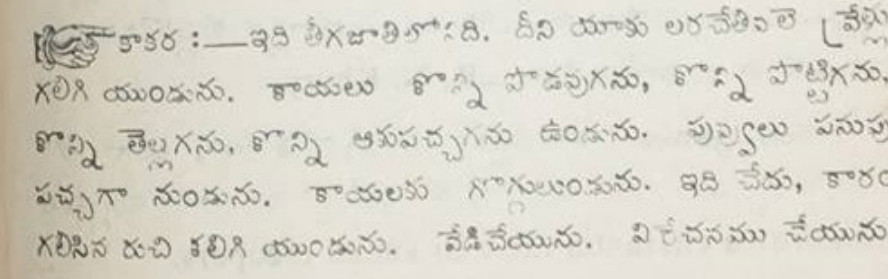 కాకర :—ఇది తీగజాతిలోనిది. దీని యాకు లరచేతివలె వ్రేళ్లు
గలిగి యుండును. కాయలు కొన్ని పొడవుగను, కొన్ని పొట్టిగను,
కొన్ని తెల్లగను, కొన్ని ఆకుపచ్చగను ఉండును. పువ్వులు పసుపు
పచ్చగా నుండును. కాయలకు గొగ్గులుండును. ఇది చేదు, కారం
గలిసిన రుచి కలిగి యుండును. వేడిచేయును. విరేచనము చేయును